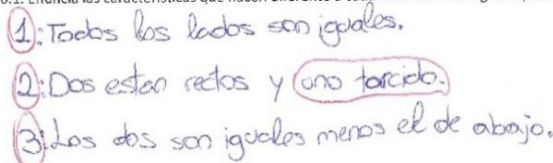 1: Todos los lados son iguales.
2: Dos estan rectos y uno torcido.
3: Los dos son iguales menos el de abajo.